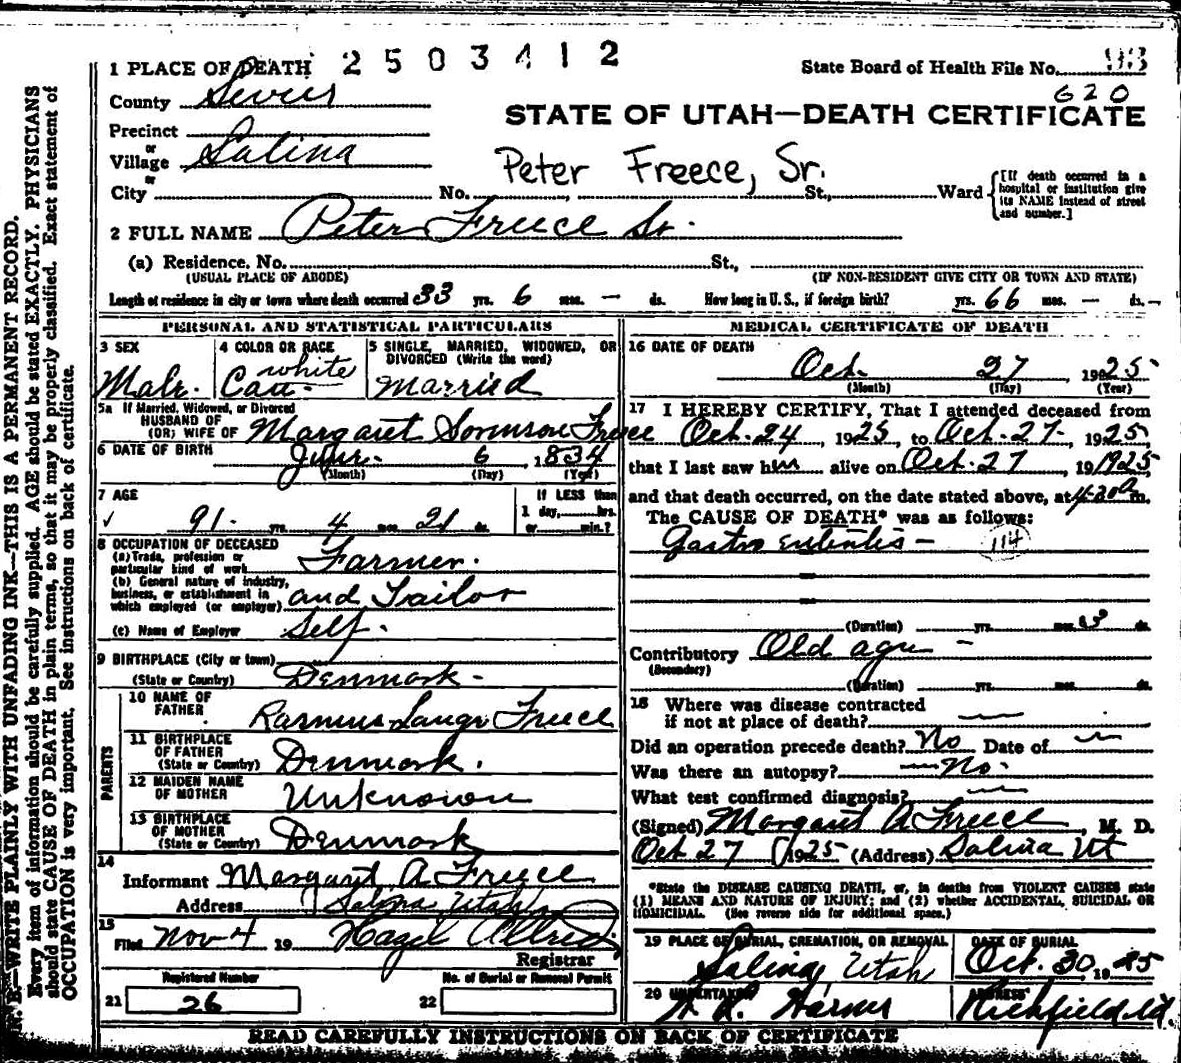 1 PLACE OF DEATH 2503412 State Board of Health File No. 93
County Sevier 620
STATE OF UTAH—DEATH CERTIFICATE
Precinct
or
Village Salina
or
Peter Freece, Sr.
City No. St., Ward {[If death occurred in a hospital or institution give its NAME instead of street and number.]
2 FULL NAME Peter Freece Sr.
(a) Residence. No. St.,
(USUAL PLACE OF ABODE) (IF NON-RESIDENT GIVE CITY OR TOWN AND STATE)
Length of residence in city or town where death occurred 33 yrs. 6 mos. — ds. How long in U. S., if foreign birth? yrs. 66 mos. — ds. —
PERSONAL AND STATISTICAL PARTICULARS
3 SEX
Male.
4 COLOR OR RACE
white
Cau.
5 SINGLE, MARRIED, WIDOWED, OR
DIVORCED (Write the word)
Married
5a If Married, Widowed, or Divorced
HUSBAND OF
(OR) WIFE OF Margaret Sorenson Freece
6 DATE OF BIRTH June 6 1834
(Month) (Day) (Year)
7 AGE
91 yrs. 4 mos. 21 ds.
If LESS than
1 day, hrs.
or min.?
8 OCCUPATION OF DECEASED
(a) Trade, profession or
particular kind of work Farmer.
(b) General nature of industry,
business, or establishment in
which employed (or employer) and Tailor
(c) Name of Employer Self.
9 BIRTHPLACE (City or town)
(State or Country) Denmark -
PARENTS
10 NAME OF
FATHER Rasmus Freece
11 BIRTHPLACE
OF FATHER
(State or Country) Denmark.
12 MAIDEN NAME
OF MOTHER Unknown
13 BIRTHPLACE
OF MOTHER
(State or Country) Denmark
14
Informant Margaret A Freece
Address Salina Utah
15
Filed Nov 4 19 Hazel Allred
Registrar
Registered Number
21 26
No. of Burial or Removal Permit
22
MEDICAL CERTIFICATE OF DEATH
16 DATE OF DEATH
Oct. 27 1925
(Month) (Day) (Year)
17 I HEREBY CERTIFY, That I attended deceased from
Oct. 24, 1925, to Oct. 27, 1925,
that I last saw him alive on Oct. 27 19 1925,
and that death occurred, on the date stated above, at 4:30a m.
The CAUSE OF DEATH* was as follows:
Gastro enteritis - 114
(Duration) yrs. mos. 3 ds.
Contributory Old age -
(Secondary)
(Duration) yrs. mos. ds.
18 Where was disease contracted
if not at place of death?
Did an operation precede death? No Date of
Was there an autopsy? No.
What test confirmed diagnosis?
(Signed) Margaret A Freece, M. D.
Oct 27 1925 (Address) Salina Ut
*State the DISEASE CAUSING DEATH, or, in deaths from VIOLENT CAUSES state
(1) MEANS AND NATURE OF INJURY; and (2) whether ACCIDENTAL, SUICIDAL OR
HOMICIDAL. (See reverse side for additional space.)
19 PLACE OF BURIAL, CREMATION, OR REMOVAL
Salina Utah
DATE OF BURIAL
Oct. 30, 1925
20 UNDERTAKER
ADDRESS
Richfield
READ CAREFULLY INSTRUCTIONS ON BACK OF CERTIFICATE
N. B.—WRITE PLAINLY WITH UNFADING INK—THIS IS A PERMANENT RECORD.
Every item of information should be carefully supplied. AGE should be stated EXACTLY. PHYSICIANS
should state CAUSE OF DEATH in plain terms, so that it may be properly classified. Exact statement of
OCCUPATION is very important. See instructions on back of certificate.